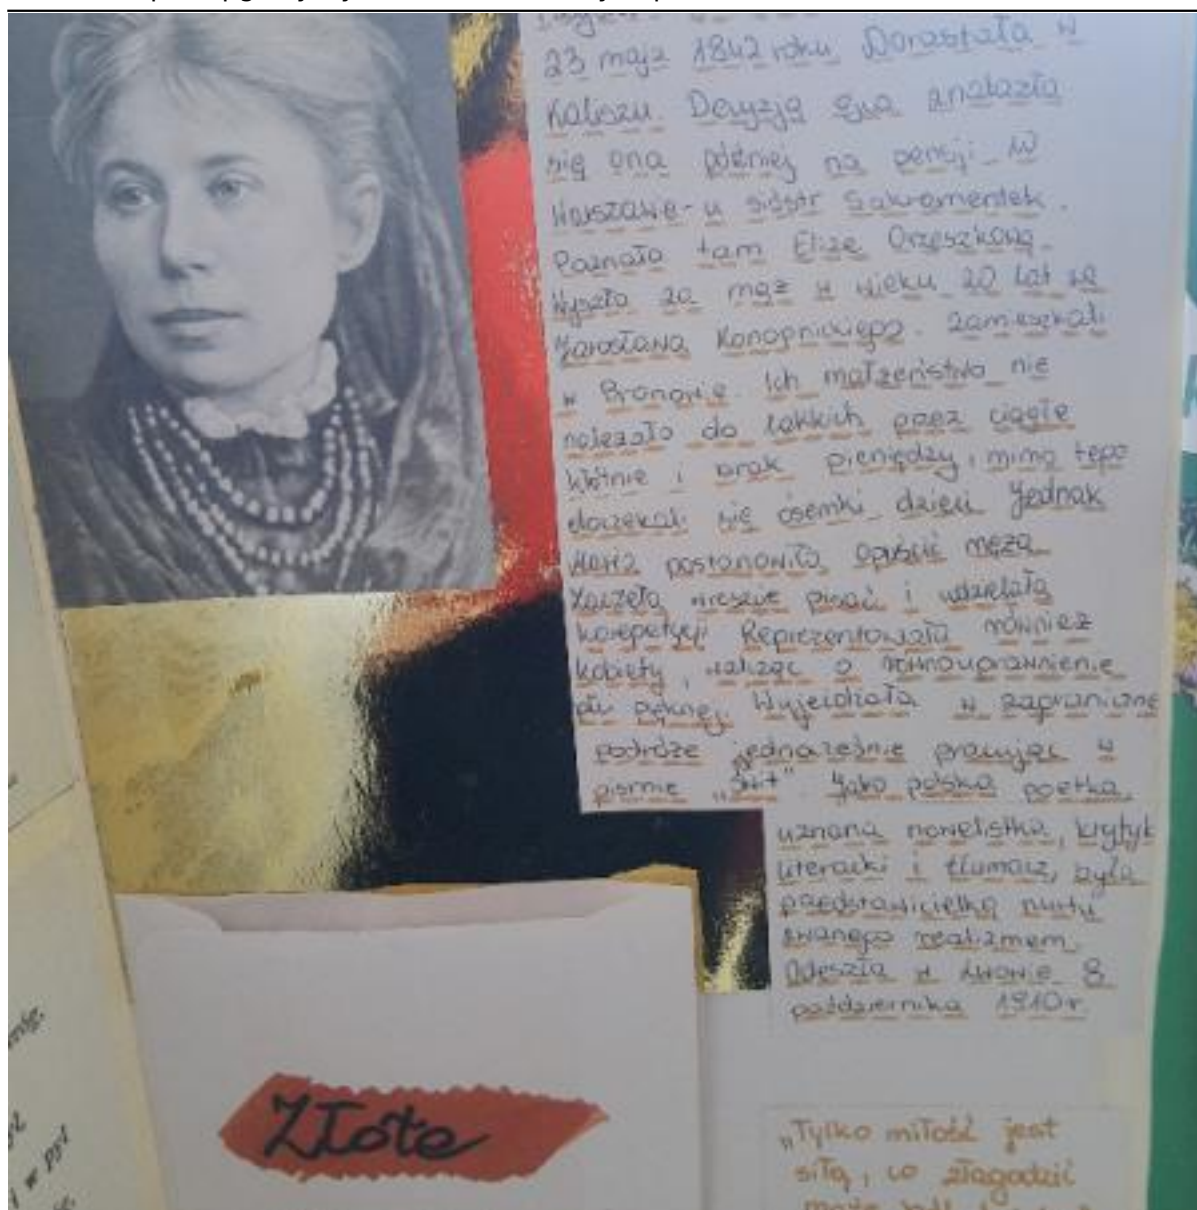 23 maja 1842 roku. Dorastała w
Kaliszu. Decyzją ojca znalazła
się ona później na pensji w
Warszawie - u sióstr Sakramentek.
Poznała tam Elizę Orzeszkową.
Wyszła za mąż w wieku 20 lat za
Jarosława Konopnickiego. Zamieszkali
w Bronowie. Ich małżeństwo nie
należało do lekkich przez ciągłe
kłótnie i brak pieniędzy, mimo tego
doczekali się ósemki dzieci. Jednak
Maria postanowiła opuścić męża.
Zaczęła wiersze pisać i udzielała
korepetycji. Reprezentowała również
kobiety, walcząc o równouprawnienie
płci pięknej. Wyjeżdżała w zagraniczne
podróże jednocześnie pracując w
piśmie „Świt". Jako polska poetka,
uznana nowelistka, krytyk
literacki i tłumacz, była
przedstawicielką nurtu
zwanego realizmem.
Odeszła w Lwowie 8
października 1910r.
Złote
„Tylko miłość jest
siłą, co złagodzić
może